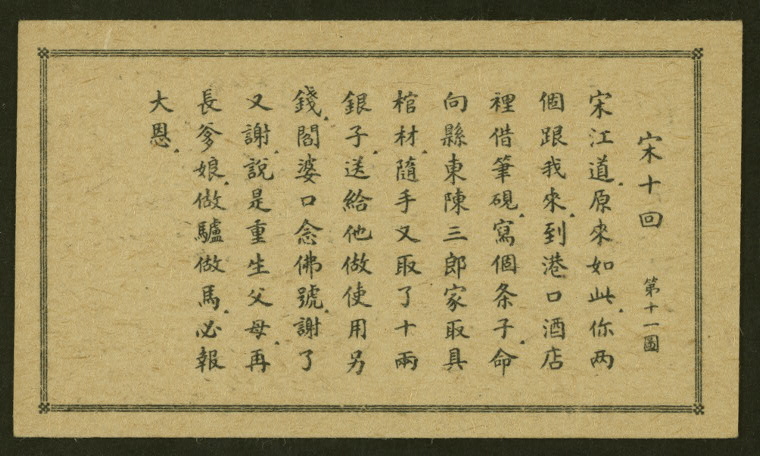 宋十回 第十一圖
宋江道.原來如此.你两
個跟我來.到港口酒店
裡借筆硯.寫個条子.命
向縣東陳三郎家取具
棺材.隨手又取了十兩
銀子.送給他做使用另
錢.閻婆口念佛號.謝了
又謝.說是重生父母.再
長爹娘.做驢做馬.必報
大恩.